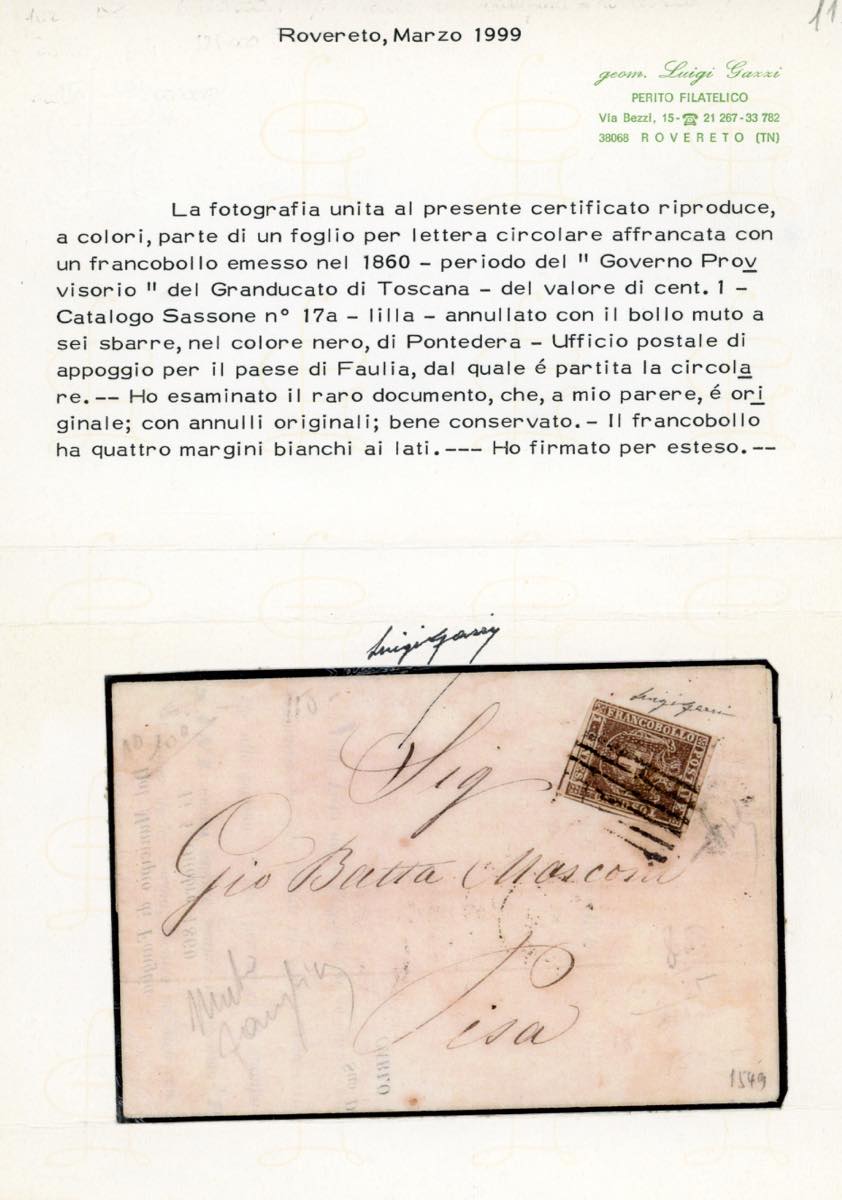 Rovereto, Marzo 1999
11
geom. Luigi Gazzi
PERITO FILATELICO
Via Bezzi, 15-☎ 21 267-33 782
38068 ROVERETO (TN)
La fotografia unita al presente certificato riproduce,
a colori, parte di un foglio per lettera circolare affrancata con
un francobollo emesso nel 1860 - periodo del " Governo Prov
visorio " del Granducato di Toscana - del valore di cent. 1 -
Catalogo Sassone n° 17a - lilla - annullato con il bollo muto a
sei sbarre, nel colore nero, di Pontedera - Ufficio postale di
appoggio per il paese di Faulia, dal quale é partita la circola
re.-- Ho esaminato il raro documento, che, a mio parere, é ori
ginale; con annulli originali; bene conservato.- Il francobollo
ha quattro margini bianchi ai lati.--- Ho firmato per esteso.--
Luigi Gazzi
Luigi Gazzi
FRANCOBOLLO
POSTALE
Sig
Gio Batta Masconi
Pisa
Muto
1860
CARLO
1549